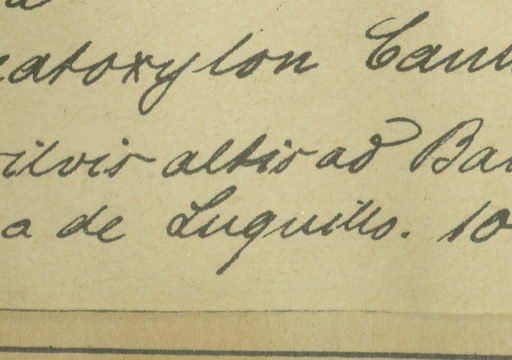 catoxylon Cau
silvis altis ad Ba
a de Luquillo. 10